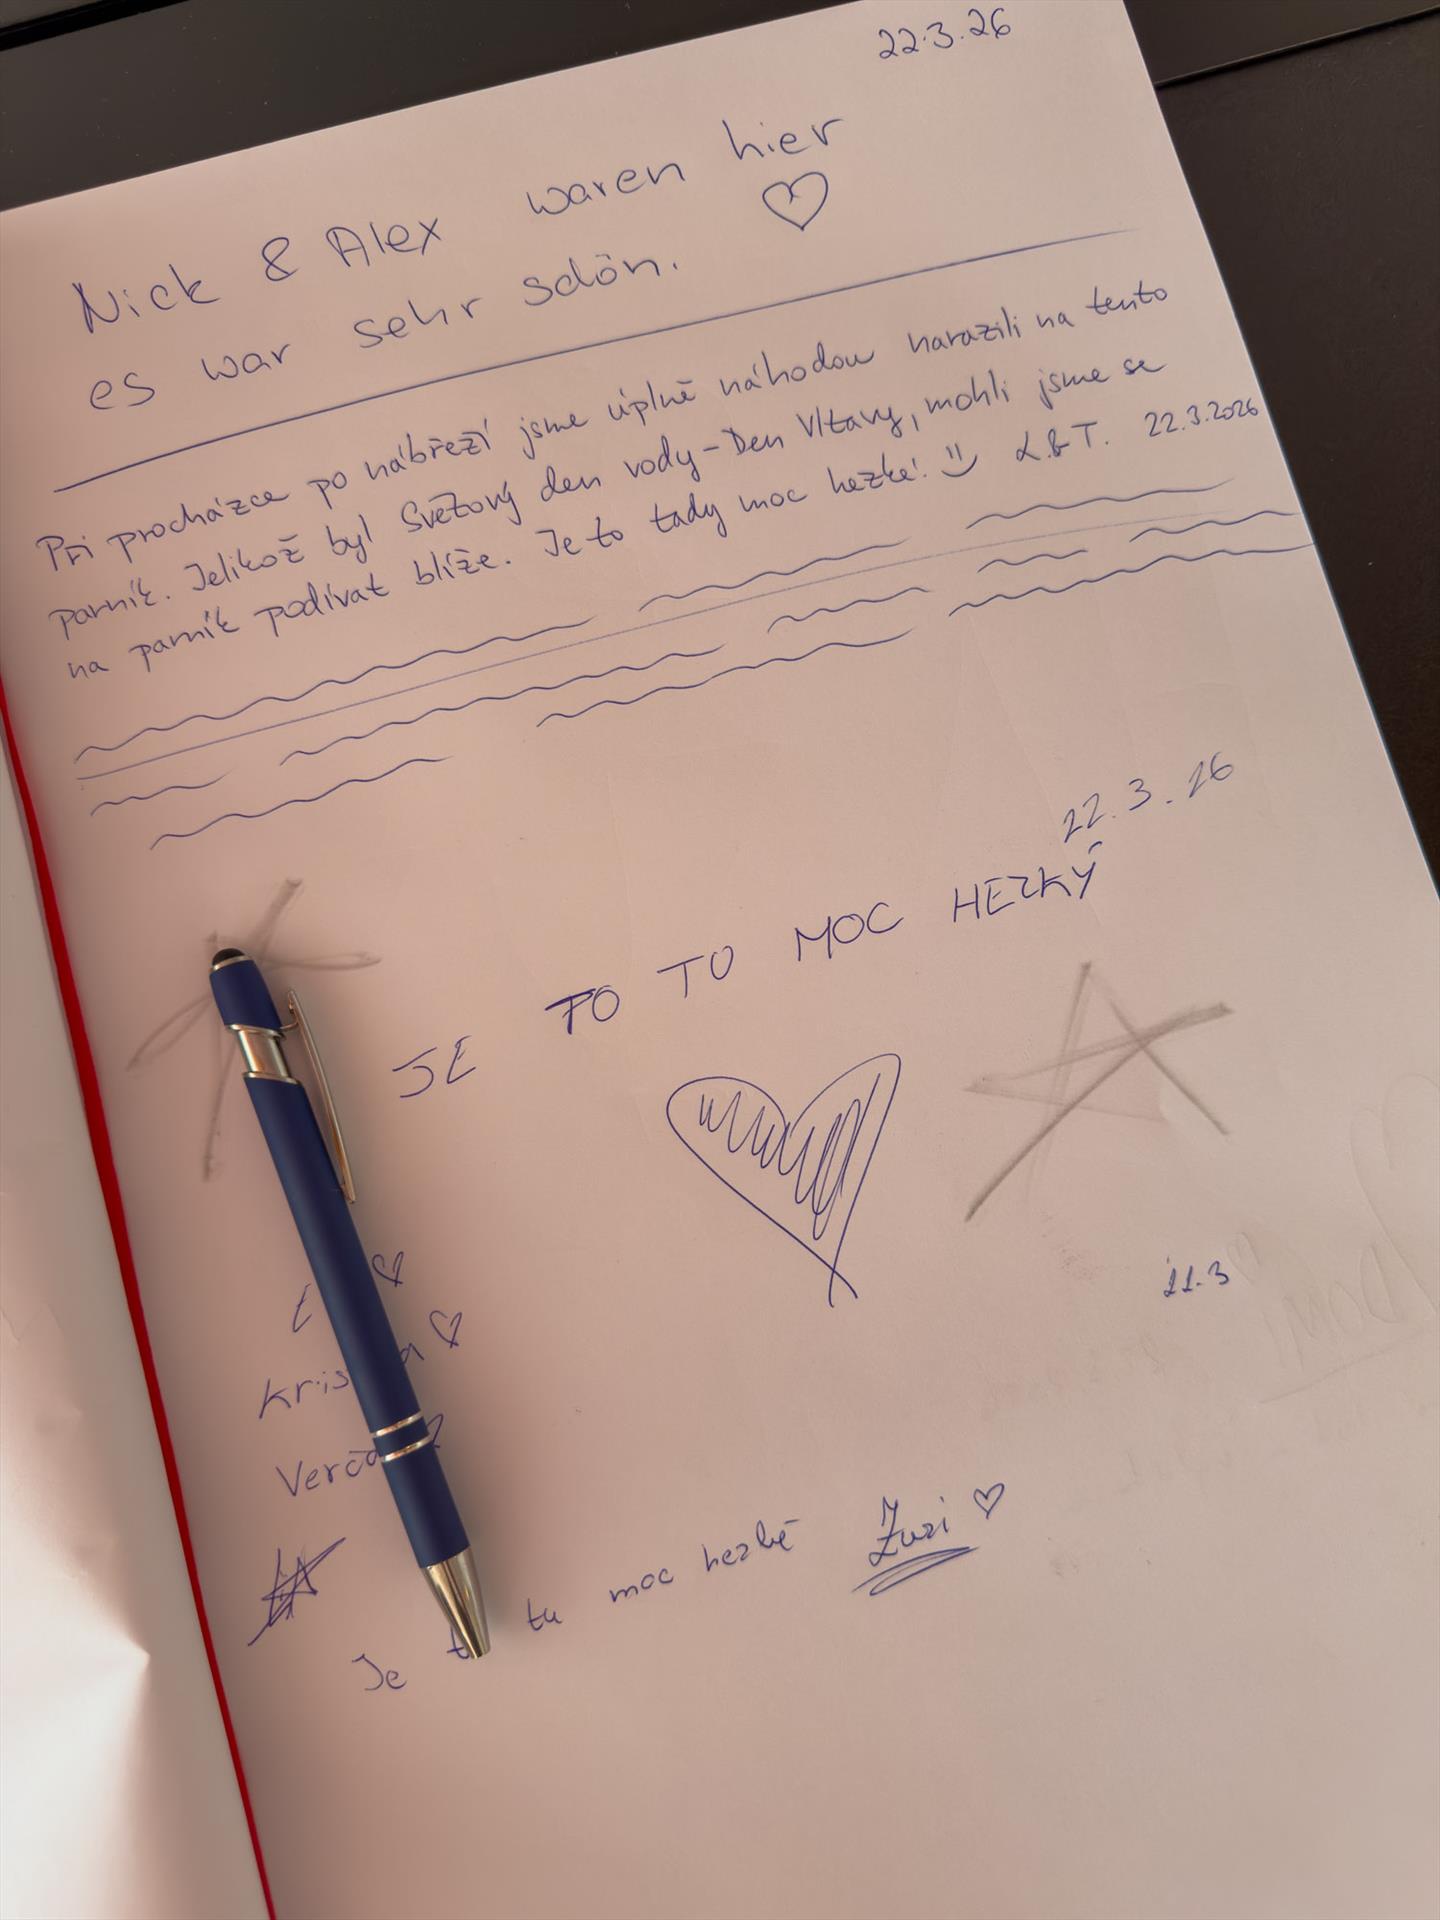 22.3.26
Nick & Alex waren hier
es war sehr schön.
Při procházce po nábřeží jsme úplně náhodou narazili na tento
parník. Jelikož byl Světový den vody - Den Vltavy, mohli jsme se
na parník podívat blíže. Je to tady moc hezké! L&T. 22.3.2026
22.3.26
JE TO TU MOC HEZKÝ
22.3
Je tu moc hezky Zuzi